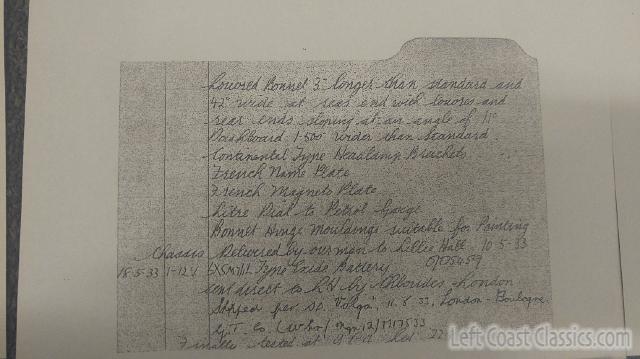 Louvred Bonnet 3" longer than standard and
42" wide at rear end with louvres and
rear ends sloping at an angle of 11°
Dashboard 1.500" wider than standard.
Continental Type Headlamp Brackets
French Name Plate
French Magneto Plate
Litre Dial to Petrol Gauge
Bonnet Hinge Mouldings suitable for Painting
Chassis Delivered by our man to Lillie Hall 10-5-33
18-5-33 1-12V Type Exide Battery
sent direct to by Chlorides London
Shipped per ss. "Volga", 11.8.33, London-Boulogne.
Finally tested at
Left Coast Classics.com